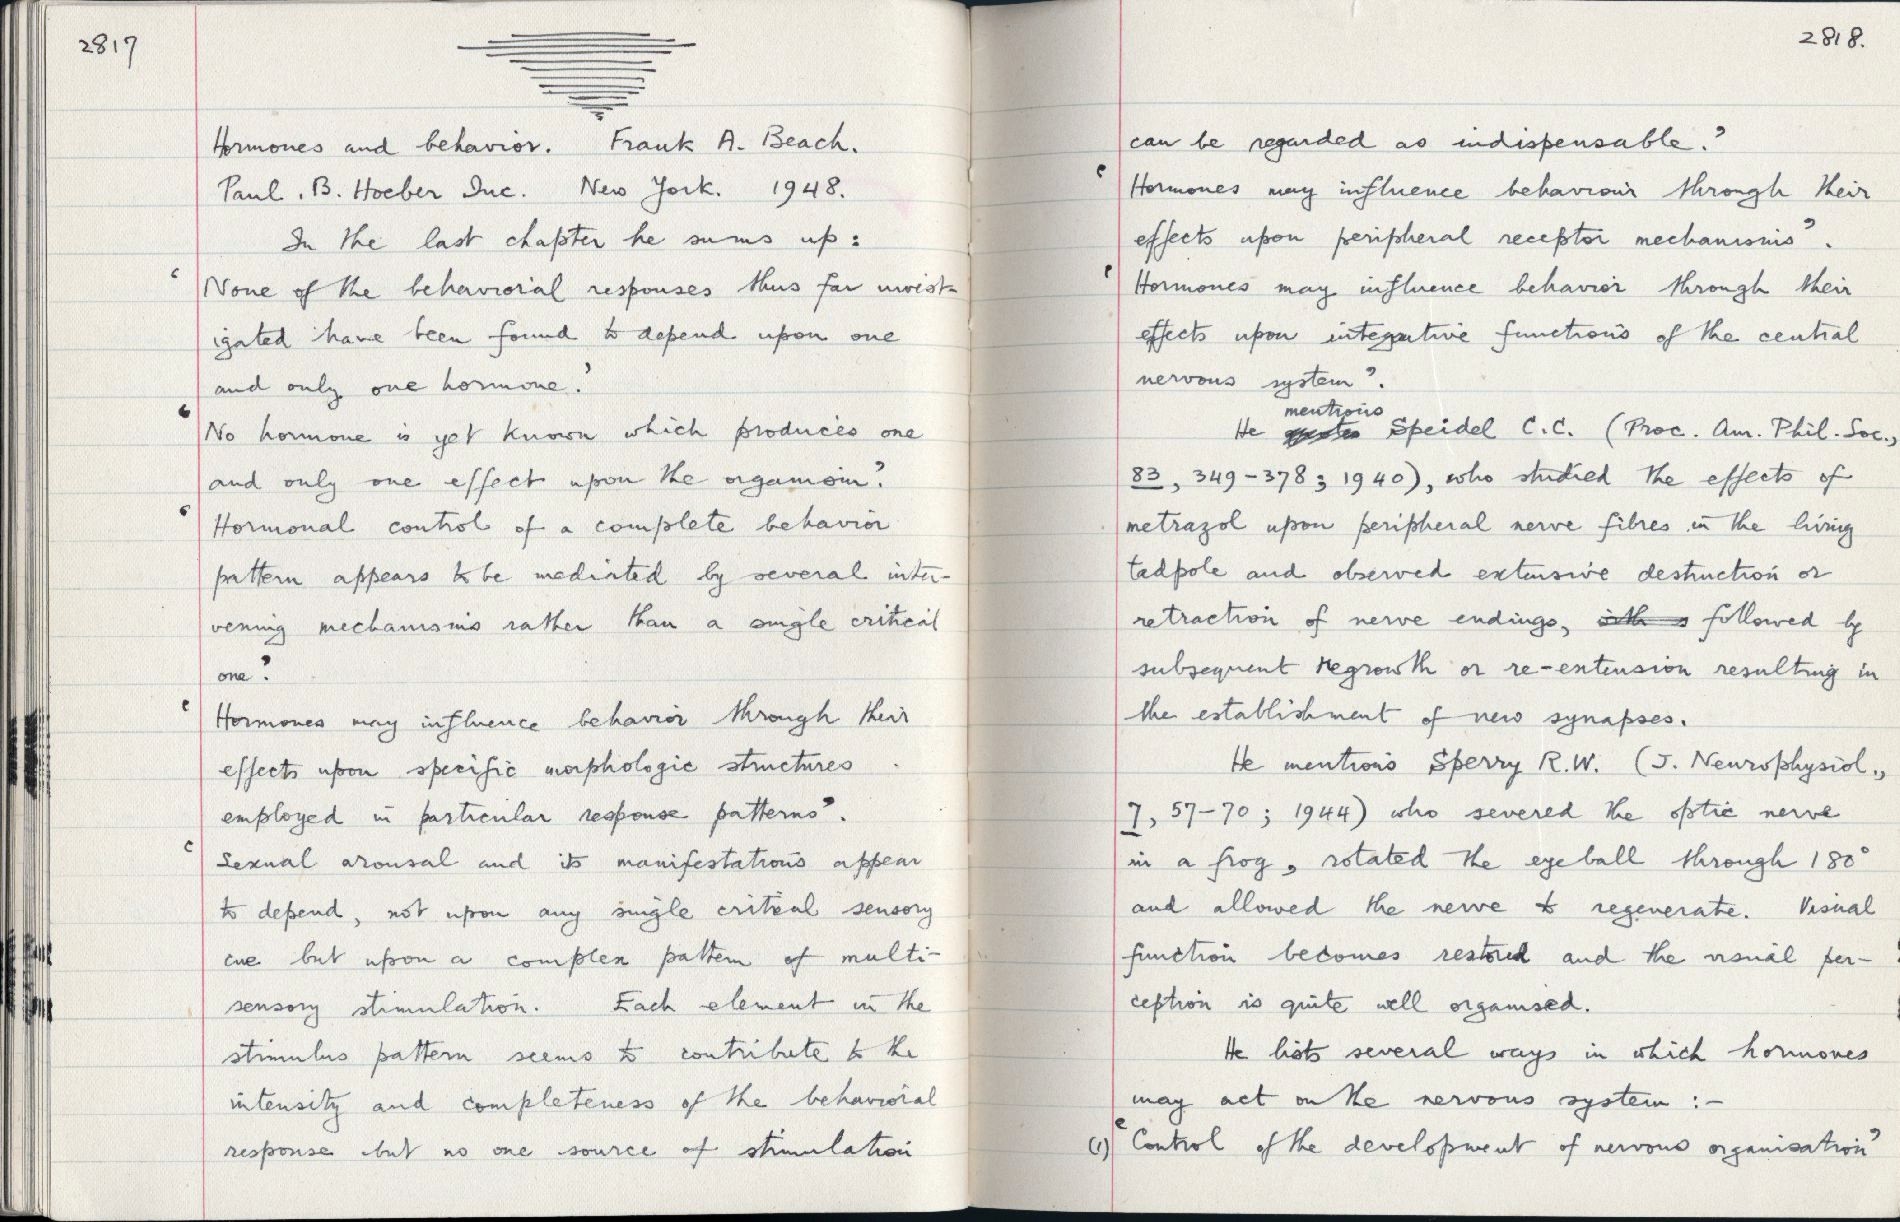 2817
Hormones and behavior. Frank A. Beach.
Paul. B. Hoeber Inc. New York. 1948.
In the last chapter he sums up:
'None of the behavioral responses thus far invest-
igated have been found to depend upon one
and only one hormone.'
'No hormone is yet known which produces one
and only one effect upon the organism.'
'Hormonal control of a complete behavior
pattern appears to be mediated by several inter-
vening mechanisms rather than a single critical
one.'
'Hormones may influence behavior through their
effects upon specific morphologic structures
employed in particular response patterns'.
'Sexual arousal and its manifestations appear
to depend, not upon any single critical sensory
cue but upon a complex pattern of multi-
sensory stimulation. Each element in the
stimulus pattern seems to contribute to the
intensity and completeness of the behavioral
response but no one source of stimulation
2818.
can be regarded as indispensable.'
'Hormones may influence behaviour through their
effects upon peripheral receptor mechanisms'.
'Hormones may influence behavior through their
effects upon integrative functions of the central
nervous system'.
He mentions Speidel C.C. (Proc. Am. Phil. Soc.,
83, 349-378; 1940), who studied the effects of
metrazol upon peripheral nerve fibres in the living
tadpole and observed extensive destruction or
retraction of nerve endings, followed by
subsequent regrowth or re-extension resulting in
the establishment of new synapses.
He mentions Sperry R.W. (J. Neurophysiol.,
7, 57-70; 1944) who severed the optic nerve
in a frog, rotated the eyeball through 180°
and allowed the nerve to regenerate. Visual
function becomes restored and the visual per-
ception is quite well organised.
He lists several ways in which hormones
may act on the nervous system :-
(1) 'Control of the development of nervous organisation'